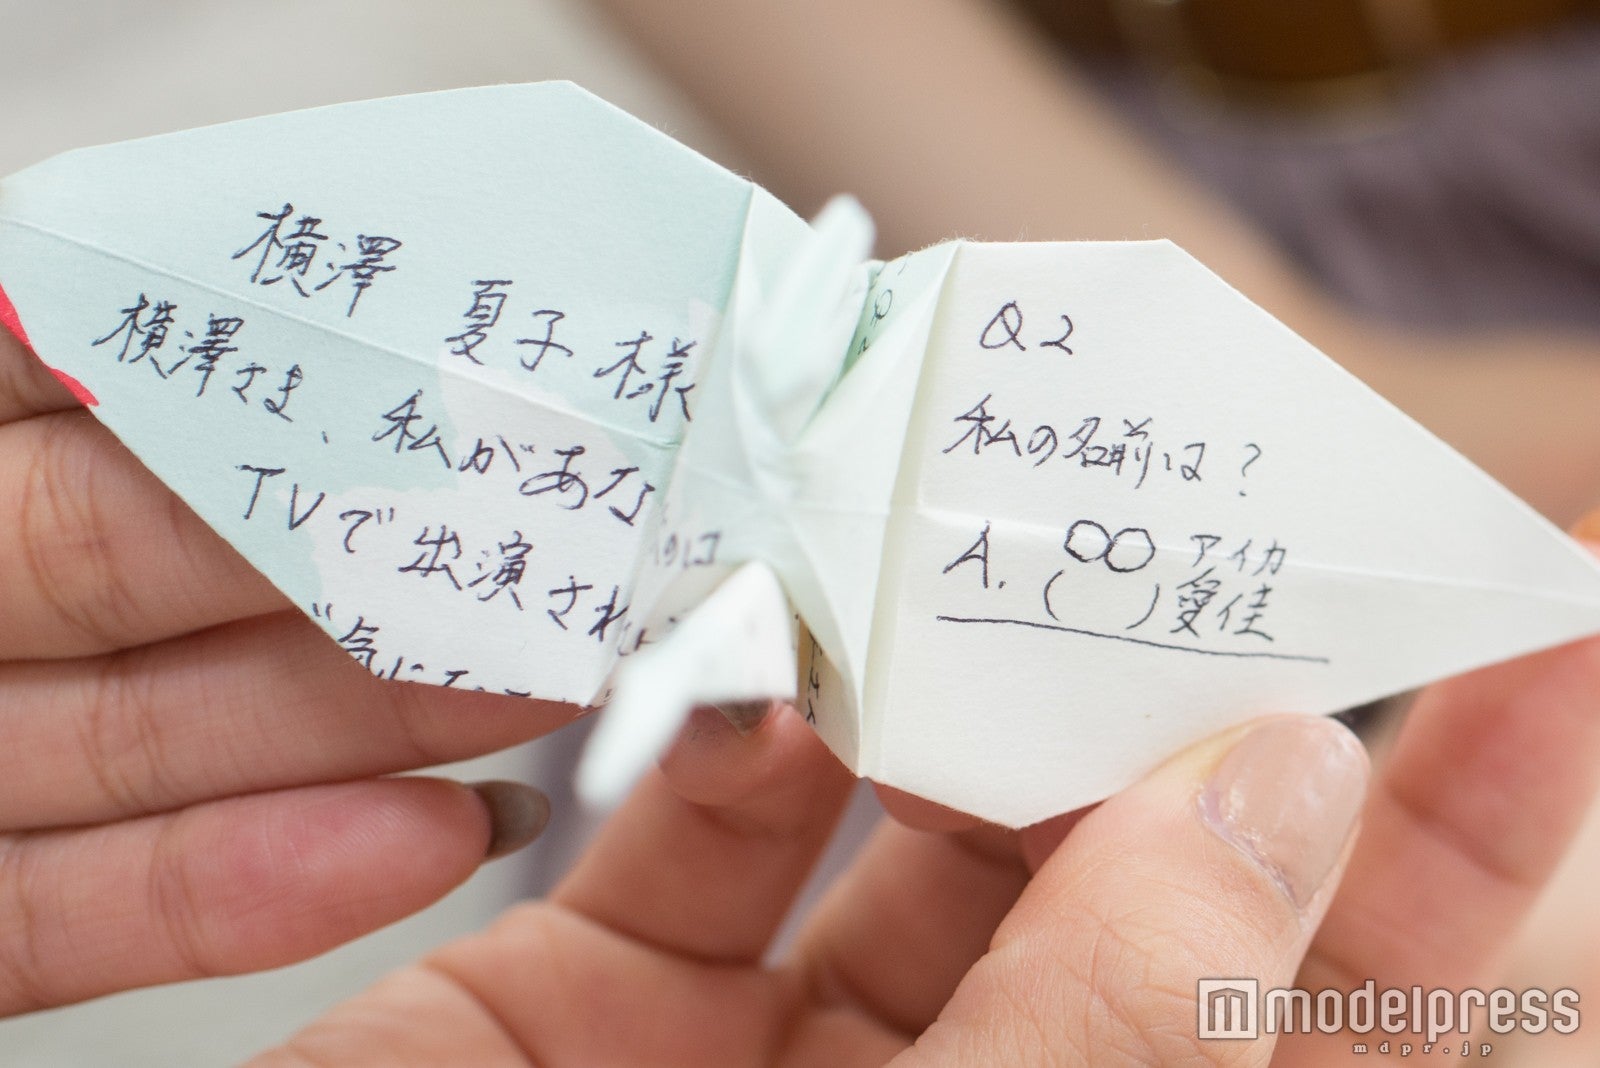 横澤 夏子 様
横澤さま、私があな
TVで出演され
気に
Q2
私の名前は?
A. ○○ アイカ
( ) 愛佳
modelpress
mdpr.jp